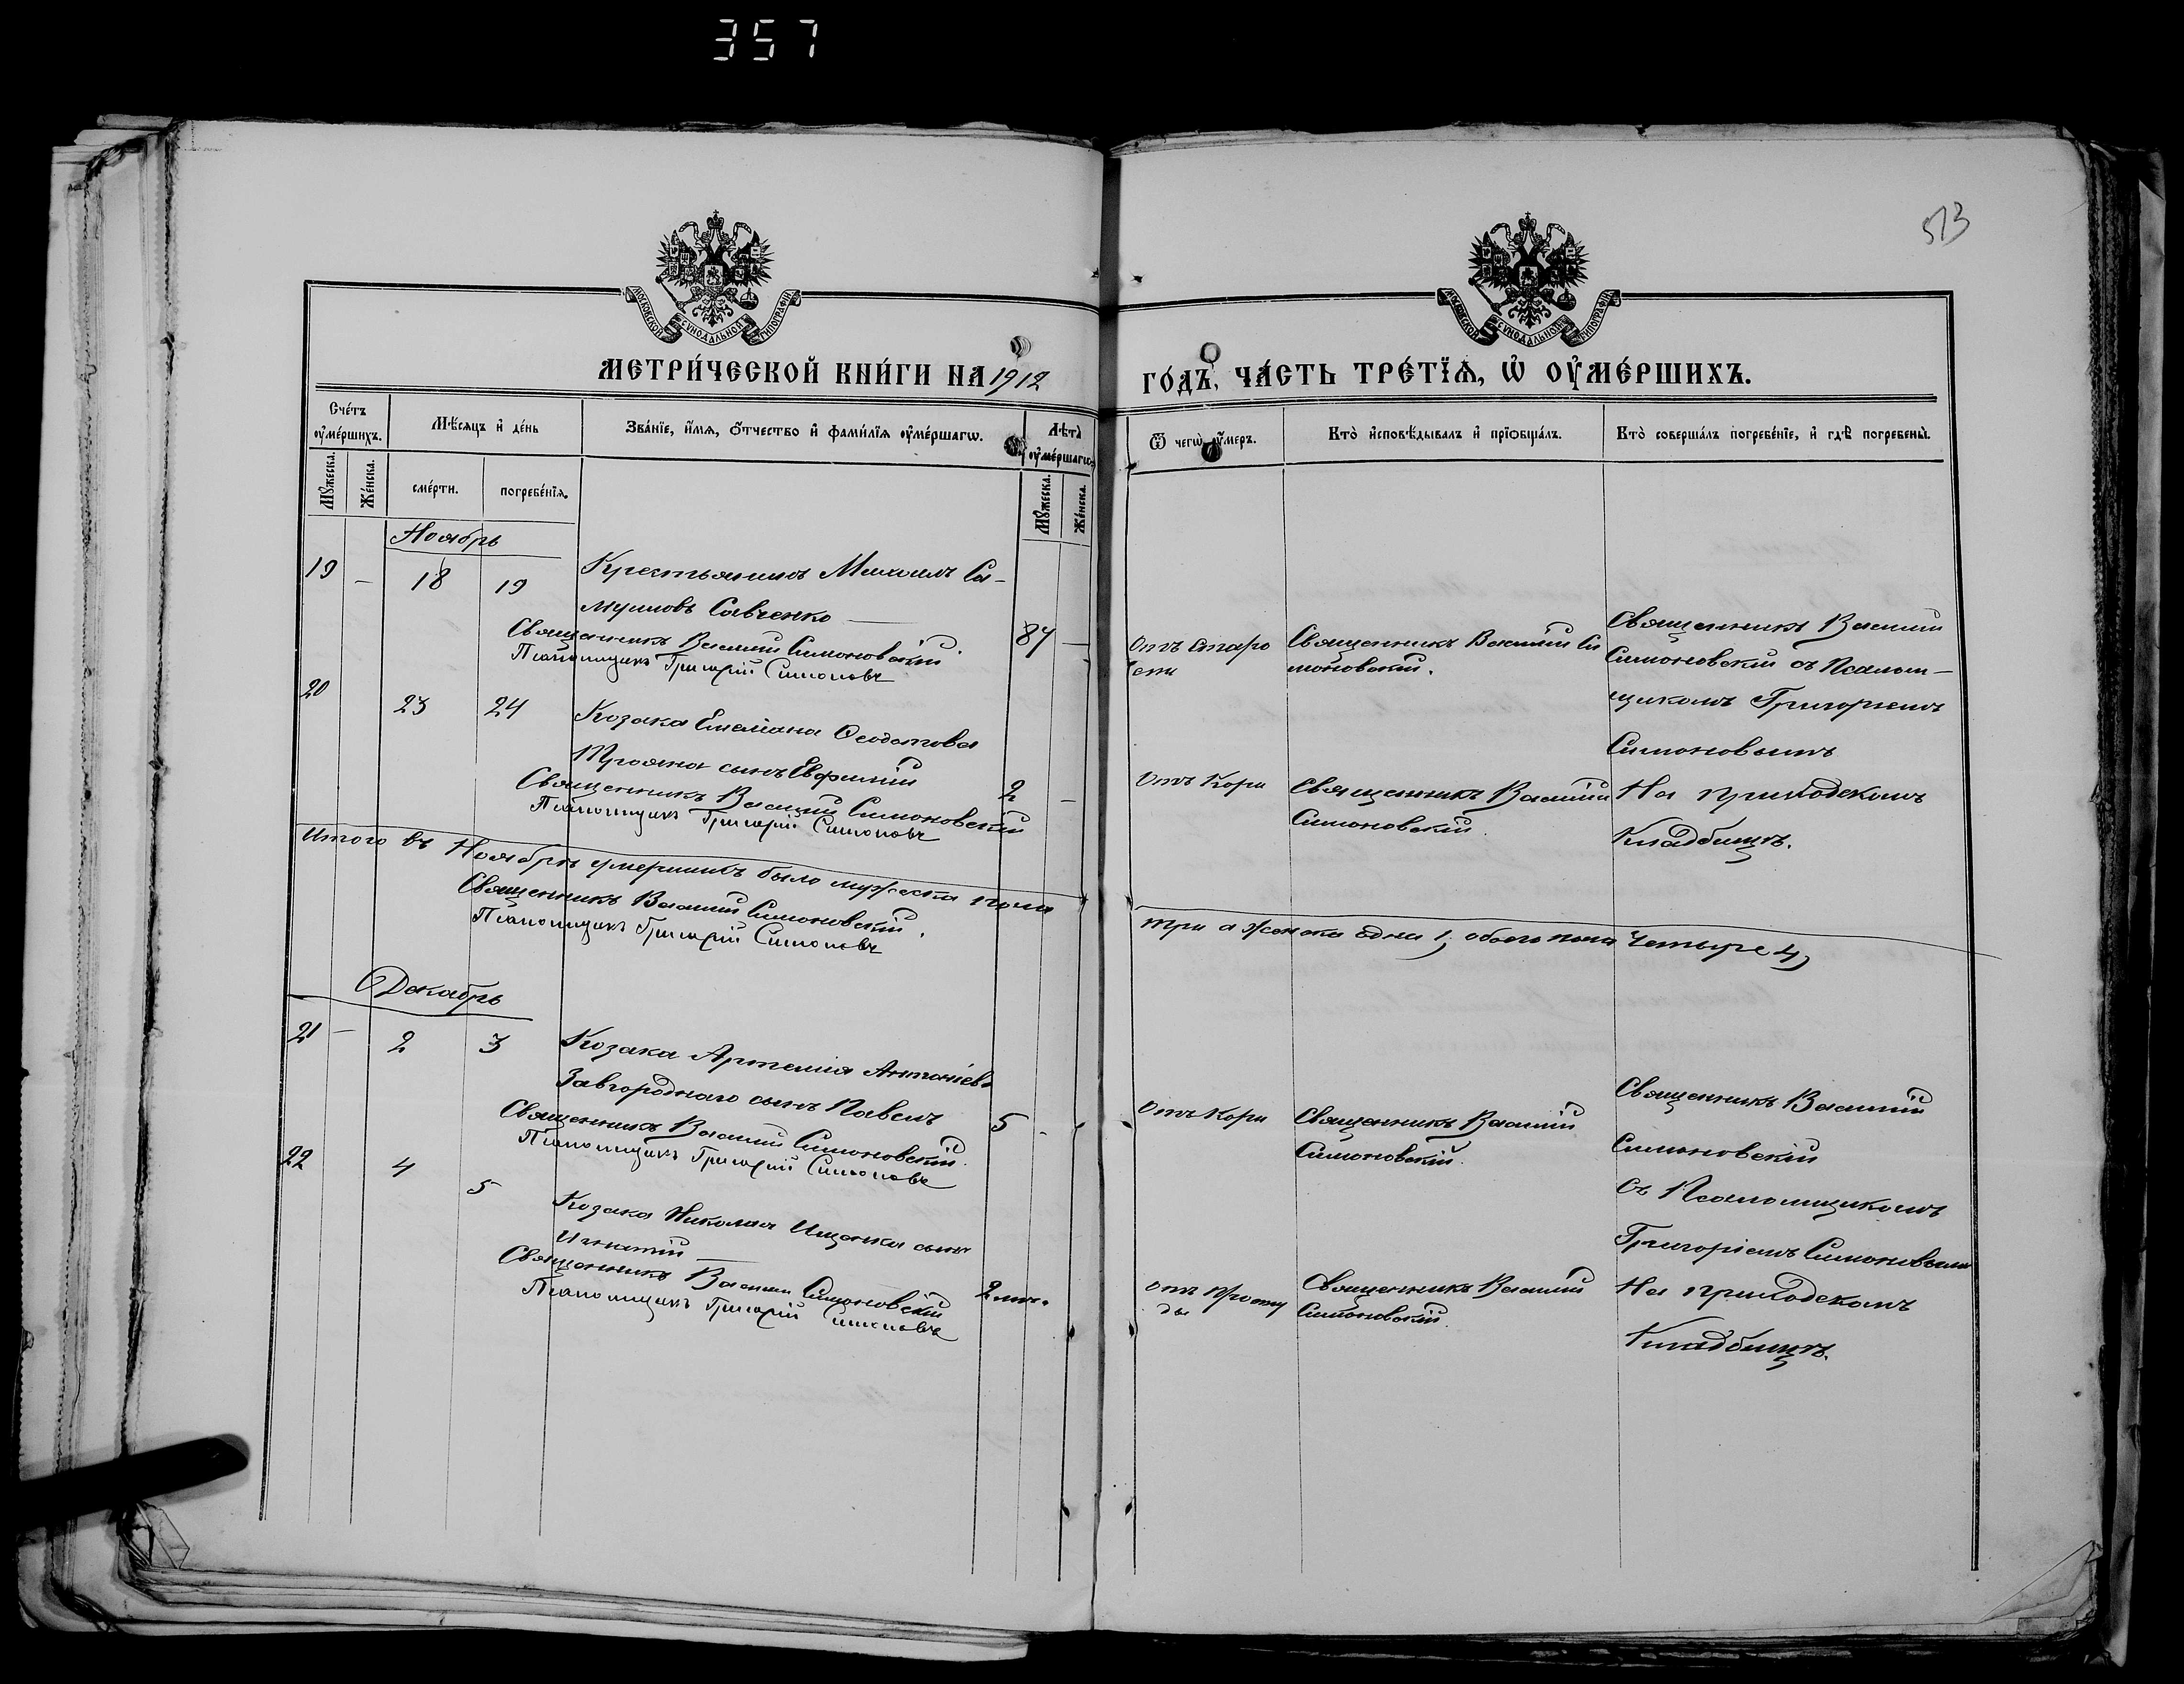 357
513
МОСКОВСКОЙ СУНОДАЛЬНОЙ ТИПОГРАФІИ
МОСКОВСКОЙ СУНОДАЛЬНОЙ ТИПОГРАФІИ
МЕТРИ́ЧЕСКОЙ КНИ́ГИ НА 1912
ГО́ДЪ, ЧА́СТЬ ТРЕ́ТЇѦ, Ѡ҆ ОУ҆МЕ́РШИХЪ.
Сче́тъ оу҆ме́ршихъ.
Мꙋ́жеска.
Же́нска.
Мѣ́сяцъ и҆ де́нь
сме́рти.
погребе́нїѧ.
Зва́нїе, и҆́мѧ, ѻ҆́тчество и҆ фами́лїѧ оу҆ме́ршагѡ.
Лѣта̀ оу҆ме́ршагѡ.
Мꙋ́жеска.
Же́нска.
Ѿ чегѡ̀ оу҆́меръ.
Кто̀ и҆сповѣ́дывалъ и҆ прїѡбща́лъ.
Кто̀ соверша́лъ погребе́нїе, и҆ гдѣ̀ погребены̀.
Ноябрь
19 – 18 19 Крестьянинъ Михаилъ Са-
муиловъ Савченко —
87 –
Священникъ Василій Симоновскій.
Псаломщикъ Григорій Симоновъ
Отъ старо
сти
Священникъ Василій Си
моновскій.
Священникъ Василій
Симоновскій съ Псалом-
щикомъ Григоріемъ
Симоновымъ
20 23 24 Козака Емеліана Ѳеодотова
Трояна сынъ Евфимій
2 –
Священникъ Василій Симоновскій
Псаломщикъ Григорій Симоновъ
Отъ Кори
Священникъ Василій
Симоновскій.
На приходскомъ
Кладбищѣ.
Итого въ Ноябрѣ умершихъ было мужеска пола
три а женска одна 1, обоего пола Четыре 4,
Священникъ Василій Симоновскій.
Псаломщикъ Григорій Симоновъ
Декабрь
21 – 2 3 Козака Артемія Антоніева
Завгороднаго сынъ Павелъ
5 -
Священникъ Василій Симоновскій.
Псаломщикъ Григорій Симоновъ
Отъ Кори
Священникъ Василій
Симоновскій.
Священникъ Василій
Симоновскій
Съ Псаломщикомъ
Григоріемъ Симоновымъ
22 4 5 Козака Николая Ищенка сынъ
Игнатій —
Священникъ Василій Симоновскій
Псаломщикъ Григорій Симоновъ
отъ Просту
ды
Священникъ Василій
Симоновскій.
На приходскомъ
Кладбищѣ.